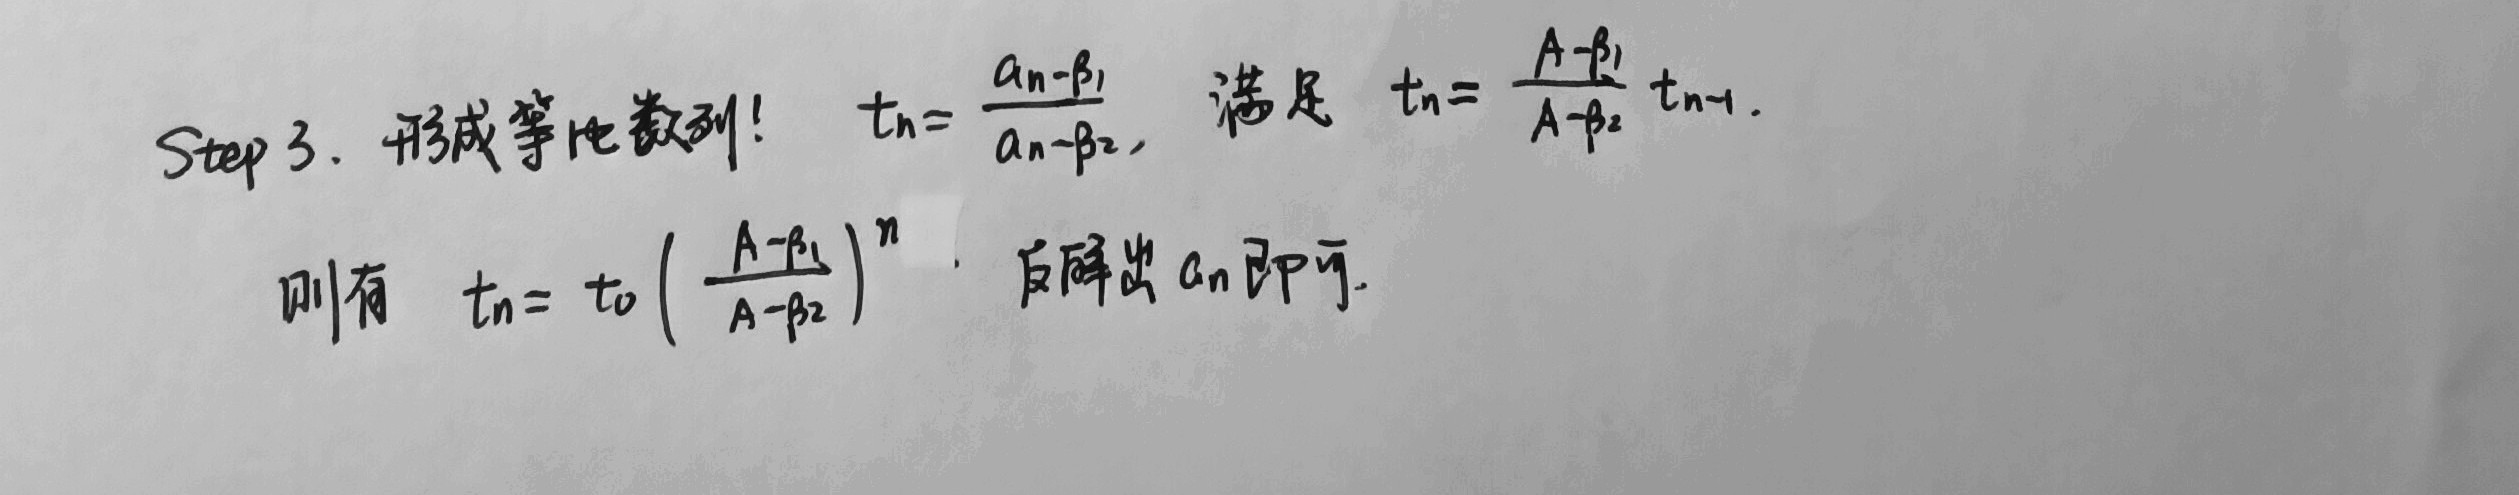 Step 3. 形成等比数列! tn = (an-β1)/(an-β2), 满足 tn = (A-β1)/(A-β2) tn-1.
则有 tn = t0 ((A-β1)/(A-β2))^n. 反解出 an 即可.